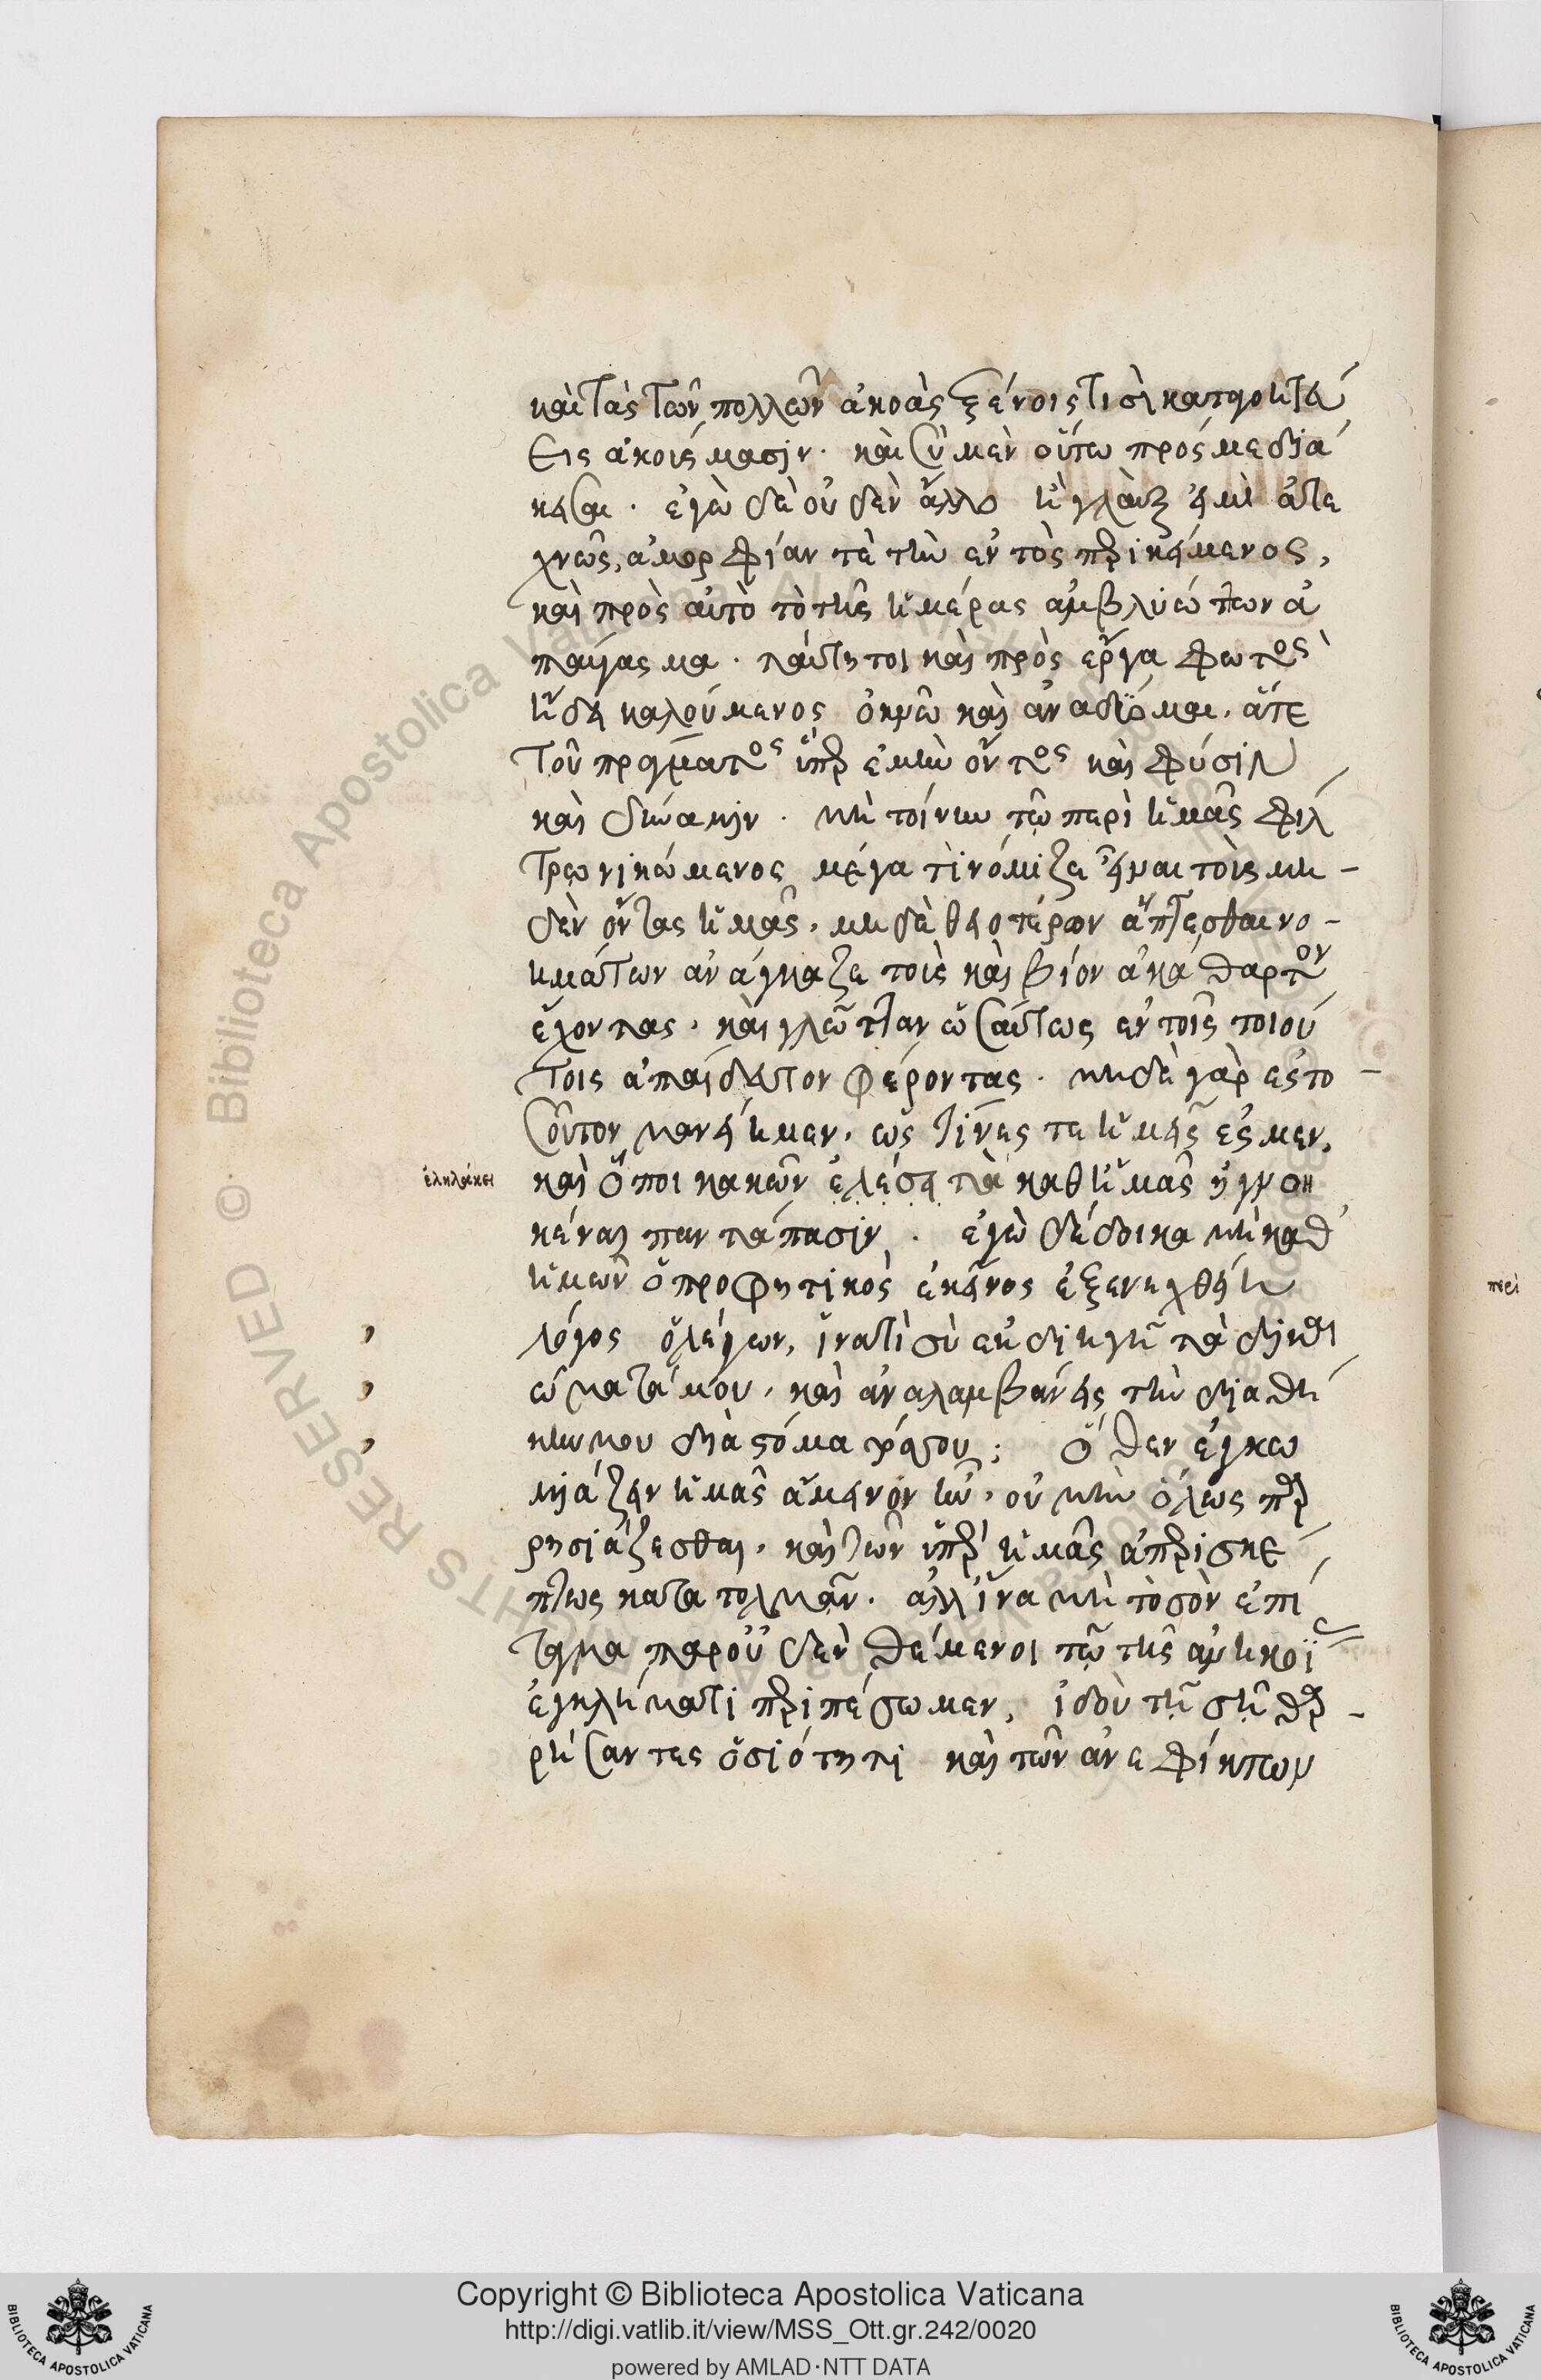 καὶ τὰς τῶν πολλῶν ἀκοὰς ξένοις τισὶ καταγοητεύ
εις ἀκούσμασιν. καὶ σὺ μὲν οὕτω πρός με διά
κεισαι. ἐγὼ δὲ οὐδὲν ἄλλο ἢ γλαὺξ εἰμὶ ἀτε
χνῶς, ἀμορφίαν τὲ τὴν ἐντὸς περικείμενος,
καὶ πρὸς αὐτὸ τὸ τῆς ἡμέρας ἀμβλυώττων ἀ
παύγασμα. ταύτητοι καὶ πρὸς ἔργα φωτὸς
ἤδη καλούμενος ὀκνῶ καὶ ἀναδύομαι. ἅτε
τοῦ πράγματος ὑπὲρ ἐμὴν ὄντος καὶ φύσιν
καὶ δύναμιν. μὴ τοίνυν τῷ περὶ ἡμᾶς φίλ
τρῳ νικώμενος μέγα τὶ νόμιζε εἶναι τοὺς μη
δὲν ὄντας ἡμᾶς. μηδὲ θειοτέρων ἅπτεσθαι νο
ημάτων ἀνάγκαζε τοὺς καὶ βίον ἀκάθαρτον
ἔχοντας. καὶ γλῶτταν ὡσαύτως ἐν τοῖς τοιού
τοις ἀπαίδευτον φέροντας. μηδὲ γὰρ ἐς το
σοῦτον μανείημεν. ὡς τίνες τε ἡμεῖς ἐσμεν.
ἐληλάκει
καὶ ὅποι κακῶν ἐλέσει τὰ καθ ἡμᾶς ἠγνοη
κέναι παντάπασιν. ἐγὼ δέδοικα μὴ καθ
ἡμῶν ὁ προφητικὸς ἐκεῖνος ἐξενεχθείη
λόγος ὁ λέγων, ἱνατί σὺ ἐκδιηγῇ τὰ δικαι
ώματά μου. καὶ ἀναλαμβάνεις τὴν διαθή
κην μου διὰ στόματός σου; ὅθεν ἐγκω
μιάζειν ἡμᾶς ἄμεινον ἦν. οὐ μὴν ὅλως παρ
ρησιάζεσθαι. καὶ τῶν ὑπὲρ ἡμᾶς ἀπερισκέ
πτως κατατολμᾶν. ἀλλ ἵνα μὴ τὸ σὸν ἐπί
ταγμα παρ οὐδὲν θέμενοι τῷ τῆς ἀνηκοΐας
ἐγκλήματι περιπέσωμεν, ἰδοὺ τῇ σῇ θαρ
ρήσαντες ὁσιότητι καὶ τῶν ἀνεφίκτων
περὶ
Copyright © Biblioteca Apostolica Vaticana
http://digi.vatlib.it/view/MSS_Ott.gr.242/0020
powered by AMLAD·NTT DATA